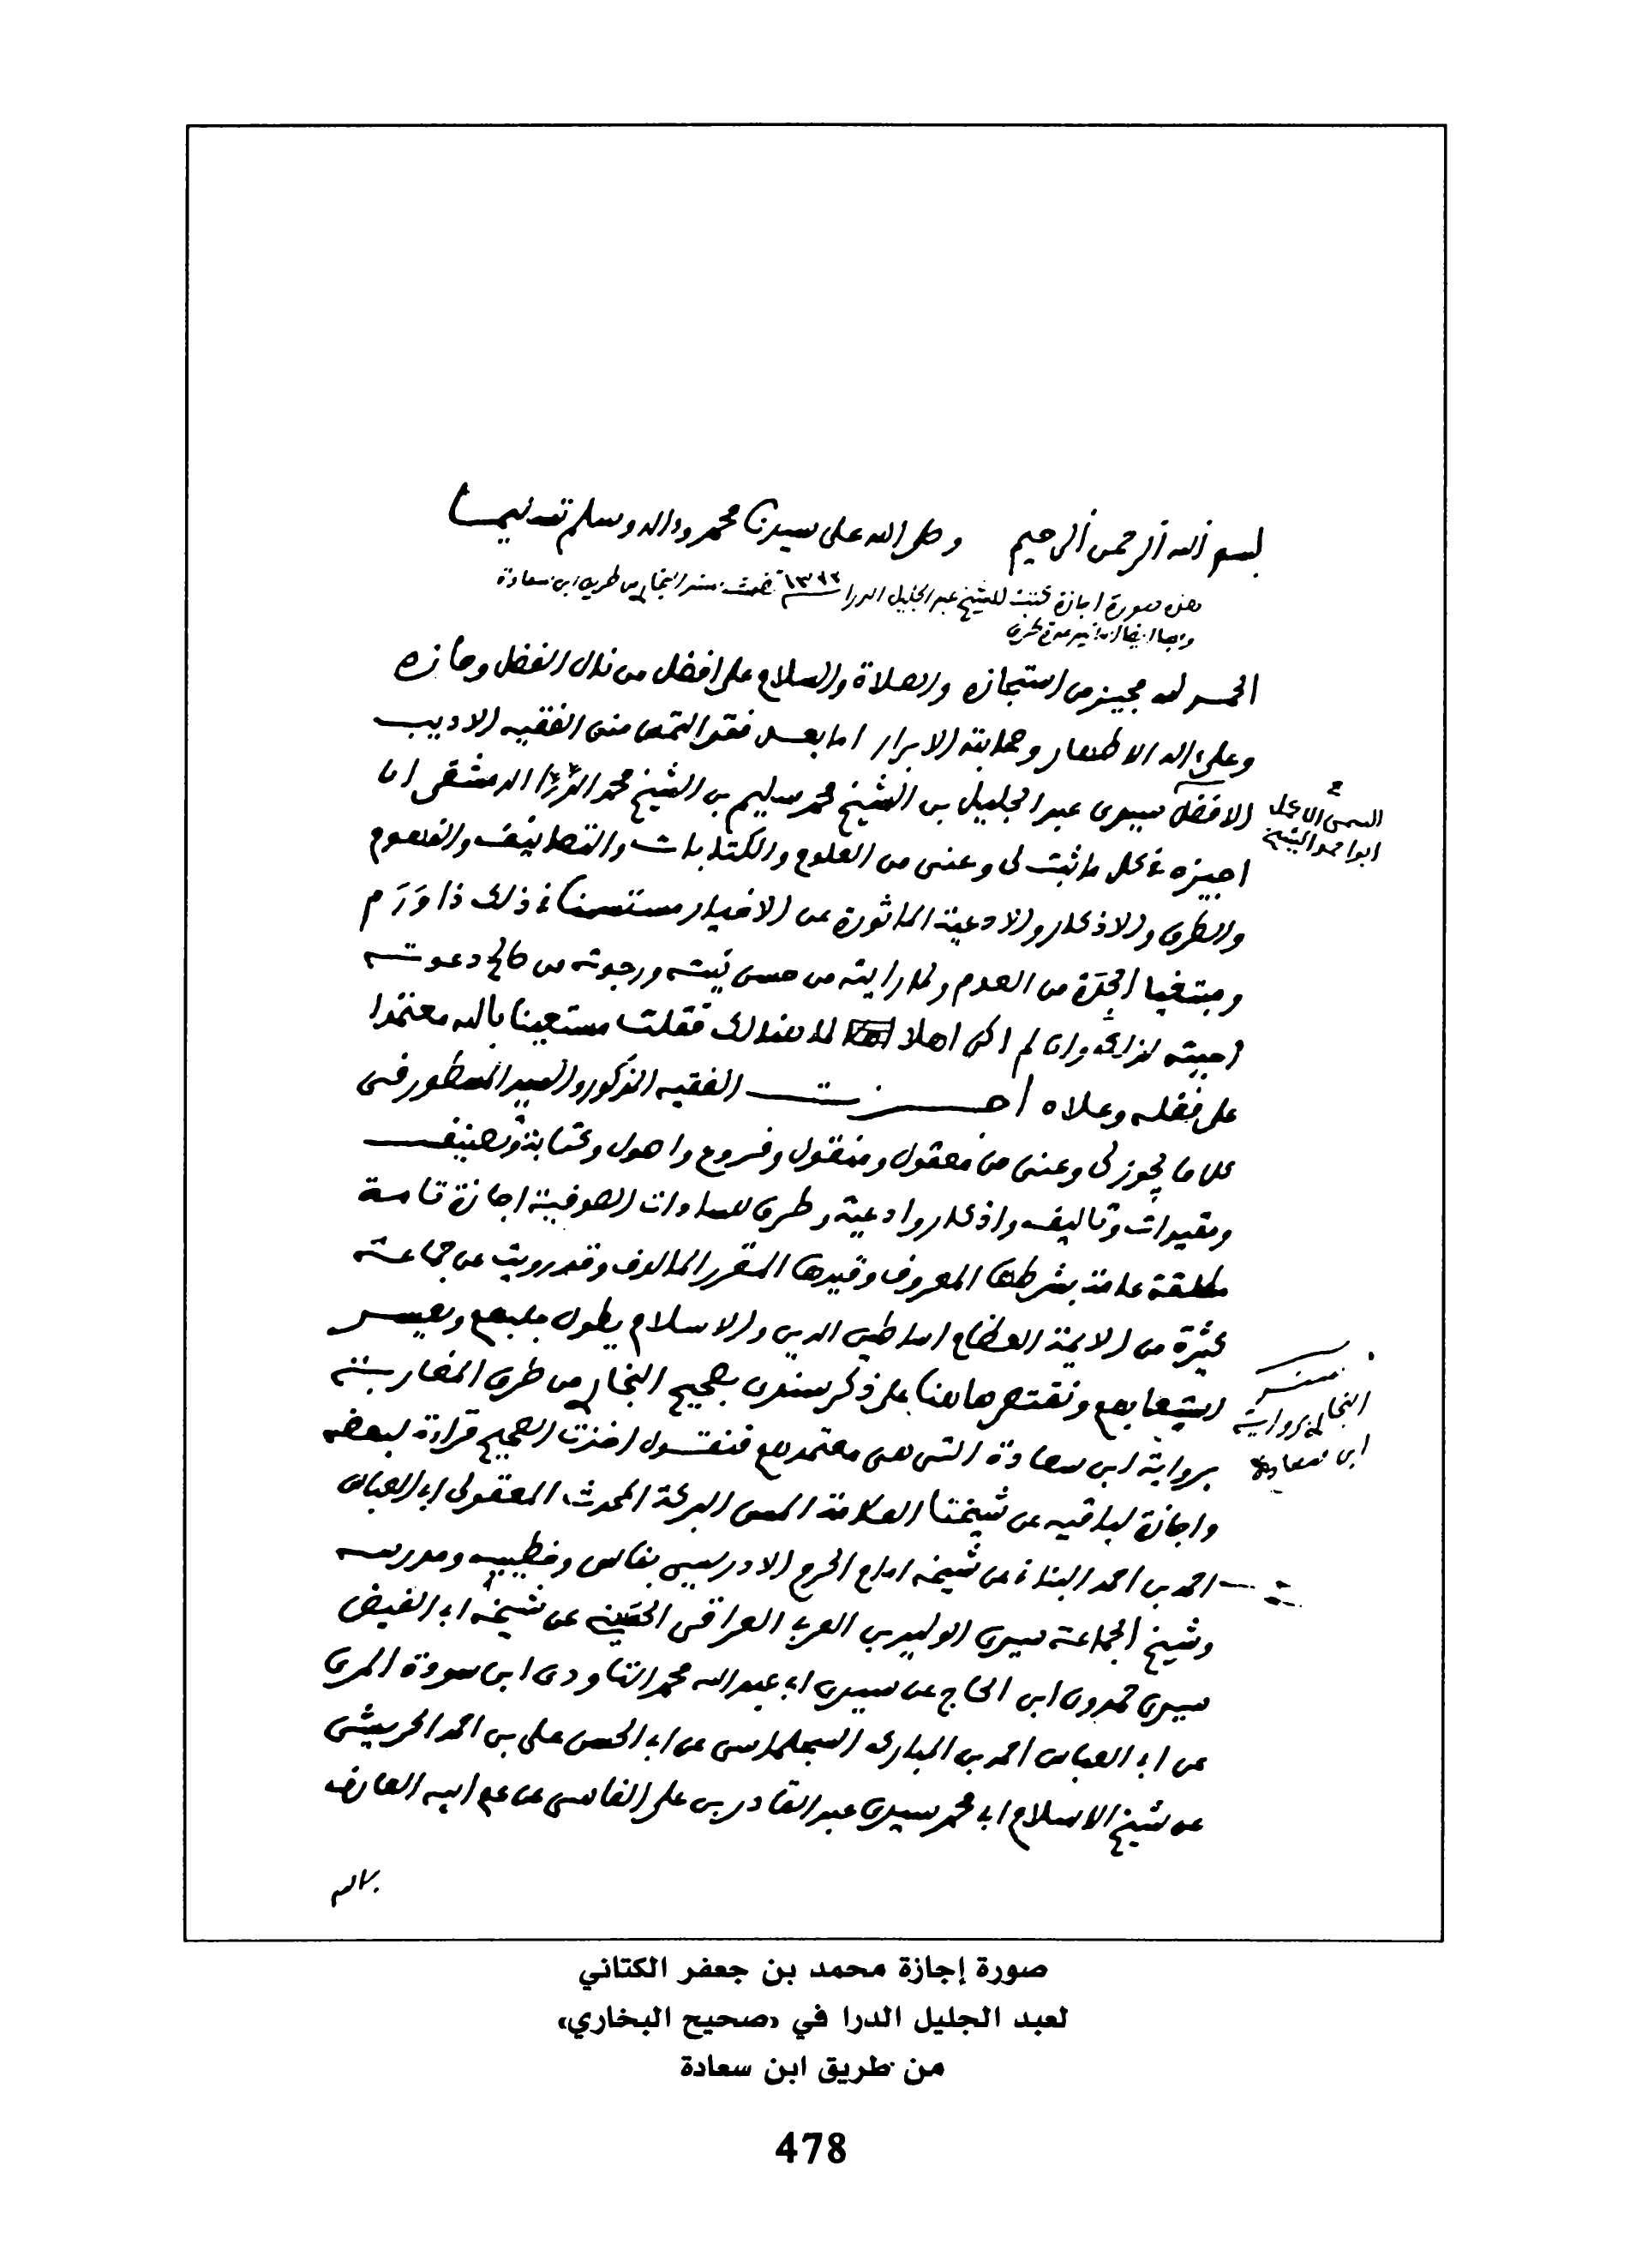 بسم الله الرحمن الرحيم وصلى الله على سيدنا محمد وءاله وسلم تسليما
هذه صورة اجازة كتبت للشيخ عبد الجليل الدرا تضمنت سند البخاري من طريق ابن سعادة
الحمد لله مجيز من استجازه والصلاة والسلام على افضل من نال الفضل وحازه
وعلى اله الاطهار وصحابته الابرار اما بعد فقد التمس منى الفقيه الاديب
الافضل سيدى عبد الجليل بن الشيخ محمد سليم بن الشيخ محمد الدرا الدمشقى ان
السمى الاجل
ابو احمد الشيخ
اجيزه في كل ما ثبت لى وعنى من العلوم والكتابات والتصانيف والفهوم
والطرق والاذكار والادعية الماثورة عن الاخيار مستسمنا في ذلك ذا وَرَم
ومبتغيا الجِدَة من العدم ولما رايته من حسن نيته ورجوته من صالح دعوته
اجبته لذلك وان لم اكن اهلا لما هنالك فقلت مستعينا بالله معتمدا
على فضله وعلاه اجزت الفقيه المذكور والسيد المسطور في
كل ما يجوز لى وعنى من معقول ومنقول وفروع واصول وكتابة وتصنيف
وتقييدات وتاليف واذكار وادعية وطرق للسادات الصوفية اجازة تامة
مطلقة عامة بشرطها المعروف وقيدها المقرر المالوف وقد رويت عن جماعة
كثيرة من الايمة العظام اساطين الدين والاسلام يطول جلبهم ويعسر
استيعابهم ونقتصر هاهنا على ذكر سندى بصحيح البخاري من طرق المغاربة
سند
البخاري برواية
ابن سعادة
برواية ابن سعادة التى هى معتمدهم فنقول اخذت الصحيح قراءة لبعضه
واجازة لباقيه عن شيخنا العلامة المسن البركة المحدث المعقولى ابى العباس
احمد بن احمد البناني عن شيخه امام الحرم الادريسى بفاس وخطيبه ومدرسه
وشيخ الجماعة سيدى الوليد بن العربى العراقى الحسينى عن شيخه ابى الفيض
سيدى حمدون ابن الحاج عن سيدى ابى عبد الله محمد التاودى ابن سودة المرى
عن ابى العباس احمد بن المبارك السجلماسى عن ابى الحسن على بن احمد الحريشى
عن شيخ الاسلام ابى محمد سيدى عبد القادر بن على الفاسى عن عم ابيه العارف
بالله
صورة إجازة محمد بن جعفر الكتاني
لعبد الجليل الدرا في «صحيح البخاري»
من طريق ابن سعادة
478